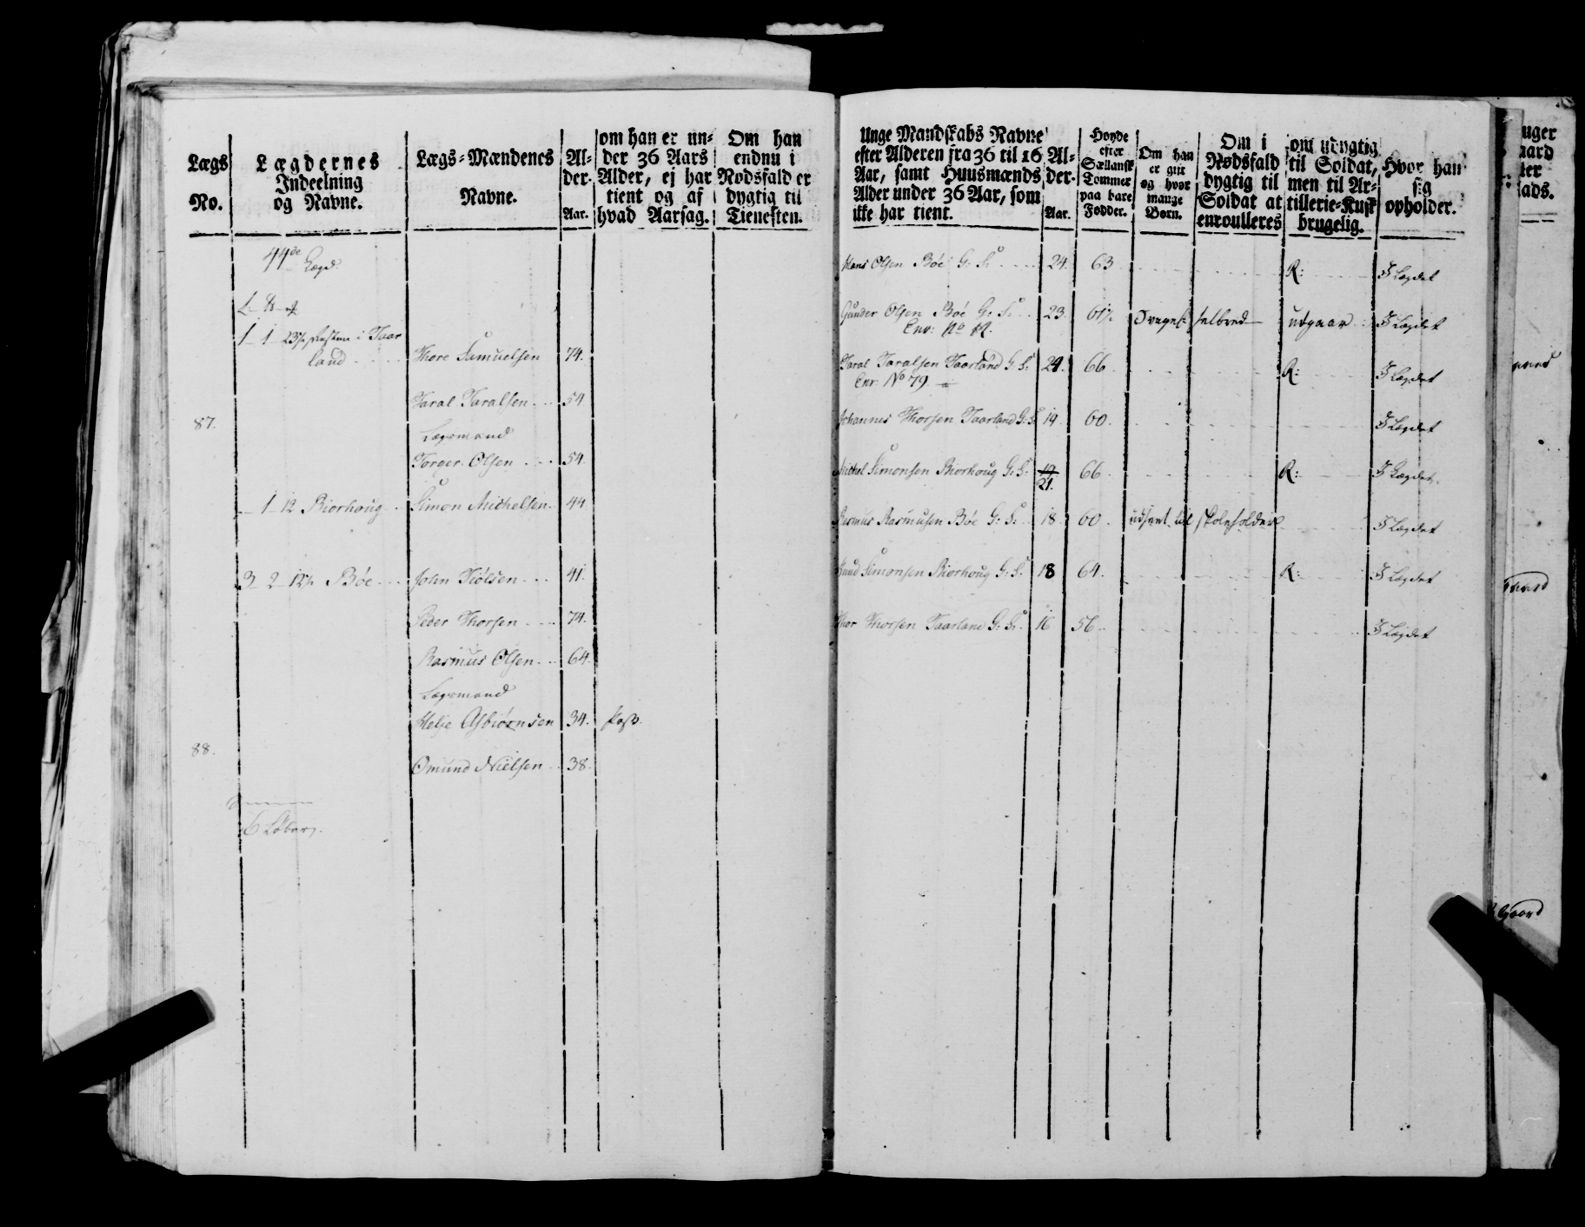 Lægs No.
Lægdernes Indeelning og Navne.
Lægs-Mændenes Navne.
Alder. Aar.
om han er under 36 Aars Alder, ej har tient og af hvad Aarsag.
Om han endnu i Nødsfald er dygtig til Tienesten.
44de Lægd
1 1 23½ i Taarland Thore Samuelsen 74.
Taral Taralsen 54
87.
Lægsmand
Torger Olsen 54
1 12 Biorhoug Simon Michelsen 44
3 2 12½ Bøe John Tiølsen 41
Peder Thorsen 74.
Rasmus Olsen 64
Lægsmand
Helje Asbiørnsen 34. Pass.
88.
Omund Nielsen 38
Unge Mandskabs Navne efter Alderen fra 36 til 16 Aar, samt Huusmænds Alder under 36 Aar, som ikke har tient.
Alder. Aar.
Høyde efter Sællandsk Tommer paa bare Fødder.
Om han er gift og hvor mange Børn.
Om i Nødsfald dygtig til Soldat at enroulleres
om udygtig til Soldat, men til Artillerie-Kusk brugelig.
Hvor han sig opholder.
Hans Olsen Bøe G: S: 24. 63 R: I Lægdet
Gunder Olsen Bøe G: S: 23 61½ Svagel: helbred udgaar I Lægdet
Enr: No
Taral Taralsen Taarland G: S: 24. 66 R: I Lægdet
Enr No 79
Johannes Thorsen Taarland G: S 19 60. I Lægdet
Michel Simonsen Biorhoug G: S. 19 66 R: I Lægdet.
21.
Rasmus Rasmusen Bøe G: S: 18 60 udseet til skoleholder I Lægdet
Knud Simonsen Biorhoug G: S. 18 64. R: I Lægdet
Thor Thorsen Taarland G: S: 16 56 I Lægdet